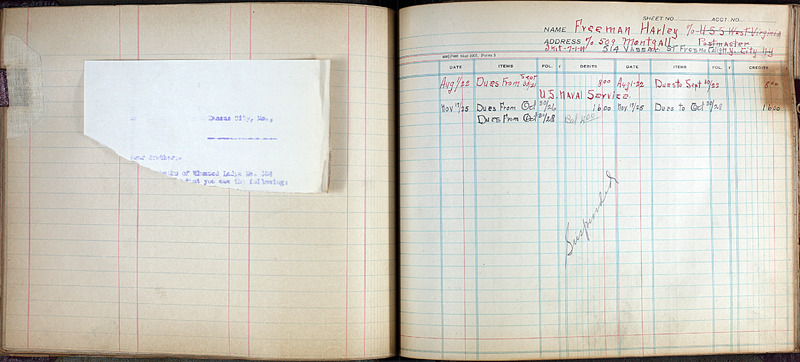 Kansas City, Mo.,
Dear Brother:-
of Rhoused Lodge No. 354
that you owe the following:
SHEET NO. ACCT. NO.
NAME Freeman Harley c/o U-S-S West Virginia
ADDRESS c/o 509 Montgall Postmaster
514 N.Y. City NY
DATE ITEMS FOL. DEBITS DATE ITEMS FOL. CREDITS
Aug/22 Dues From Sept 800 Aug 1-22 Dues to Sept 30/22
U.S. Naval Service
Nov 17/25 Dues From Oct 20/26 1600 Nov 17/25 Dues to Oct 20/28 1600
Dues From Oct 20/28
Suspended